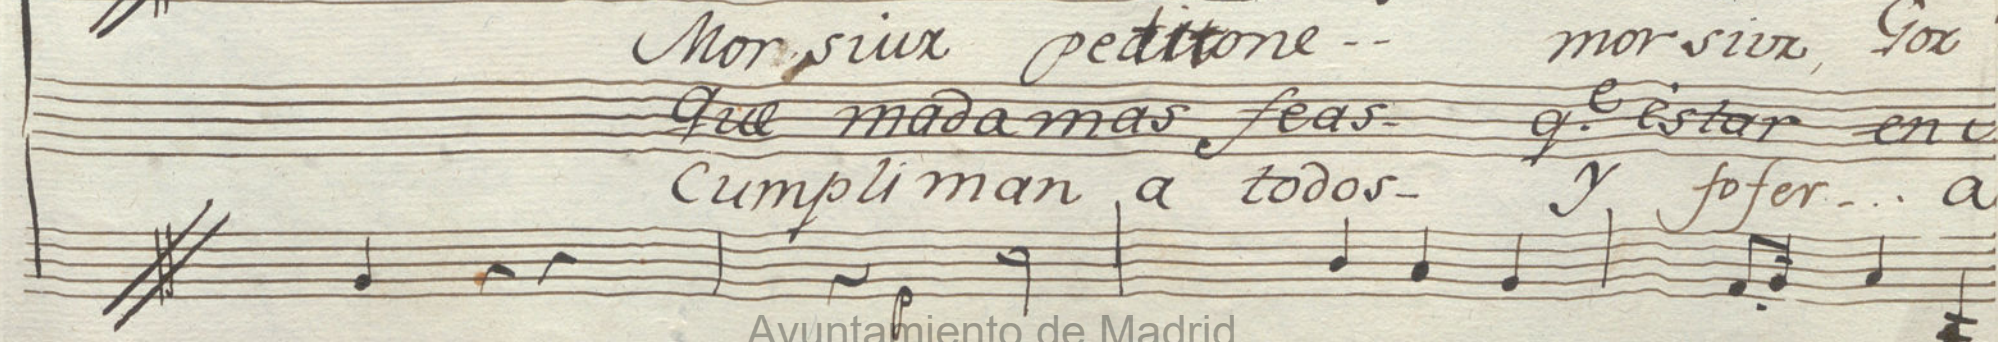 Mor siux peditone -- mor siux, Gox
Que madamas feas- q.e estar en
Cumpli man a todos- y fofer-... a
Ayuntamiento de Madrid